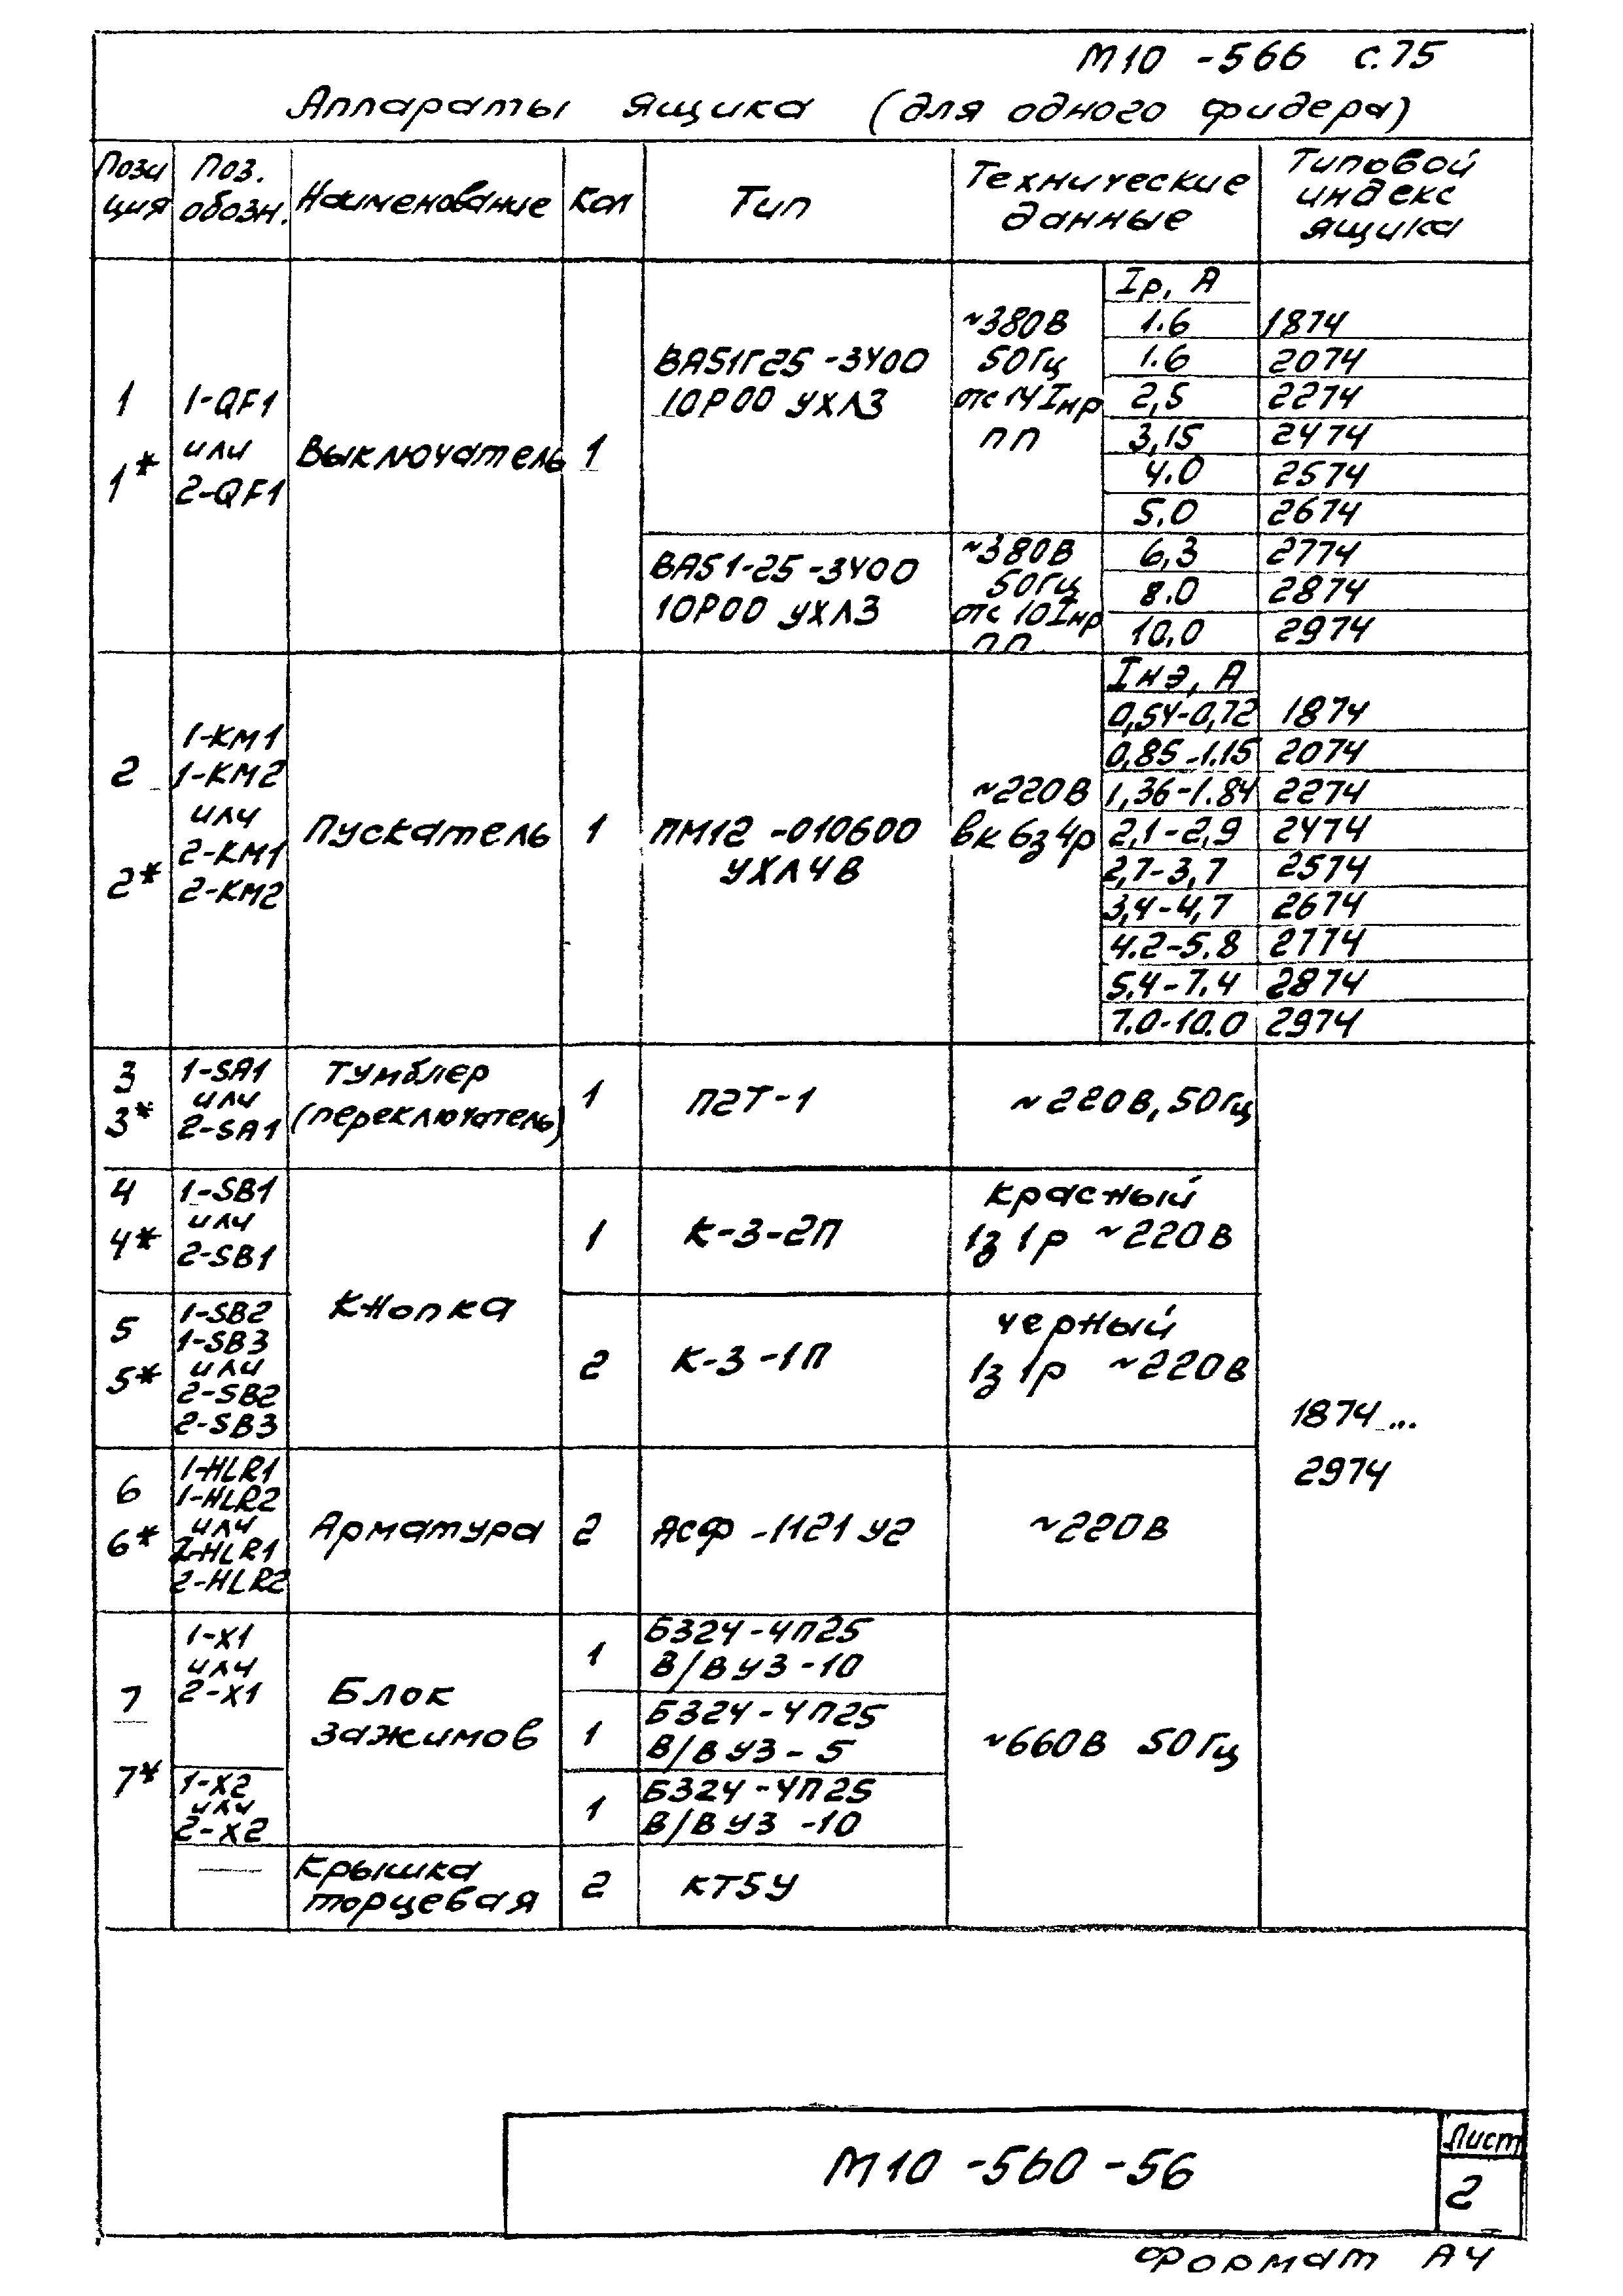 М10 -566 с.75
Аппараты ящика (для одного фидера)
Пози
ция
Поз.
обозн.
Наименование
Кол
Тип
Технические
данные
Типовой
индекс
ящика
1
1*
1-QF1
или
2-QF1
Выключатель
1
ВА51Г25 -3400
10Р00 УХЛ3
~380В
50Гц
отс 14 Iнр
пп
Iр, А
1.6 1874
1.6 2074
2,5 2274
3,15 2474
4.0 2574
5.0 2674
ВА51-25 -3400
10Р00 УХЛ3
~380В
50Гц
отс 10 Iнр
пп
6,3 2774
8.0 2874
10,0 2974
2
2*
1-КМ1
1-КМ2
или
2-КМ1
2-КМ2
Пускатель
1
ПМ12 -010600
УХЛ4В
~220В
вк 6з 4р
Iнэ, А
0,54-0,72 1874
0,85-1.15 2074
1,36-1.84 2274
2,1-2,9 2474
2,7-3,7 2574
3,4-4,7 2674
4.2-5.8 2774
5.4-7.4 2874
7.0-10.0 2974
3
3*
1-SA1
или
2-SA1
Тумблер
(переключатель)
1
П2Т-1
~220В, 50Гц
4
4*
1-SB1
или
2-SB1
Кнопка
1
К-3-2П
красный
1з 1р ~220В
5
5*
1-SB2
1-SB3
или
2-SB2
2-SB3
2
К-3-1П
черный
1з 1р ~220В
1874...
2974
6
6*
1-HLR1
1-HLR2
или
2-HLR1
2-HLR2
Арматура
2
АСФ -1121 У2
~220В
7
7*
1-X1
или
2-X1
1-X2
или
2-X2
Блок
зажимов
1
БЗ24-4П25
В/ВУЗ-10
1
БЗ24-4П25
В/ВУЗ-5
1
БЗ24-4П25
В/ВУЗ -10
~660В 50Гц
—
Крышка
торцевая
2
КТ5У
М10 -560 -56
Лист
2
Формат А4